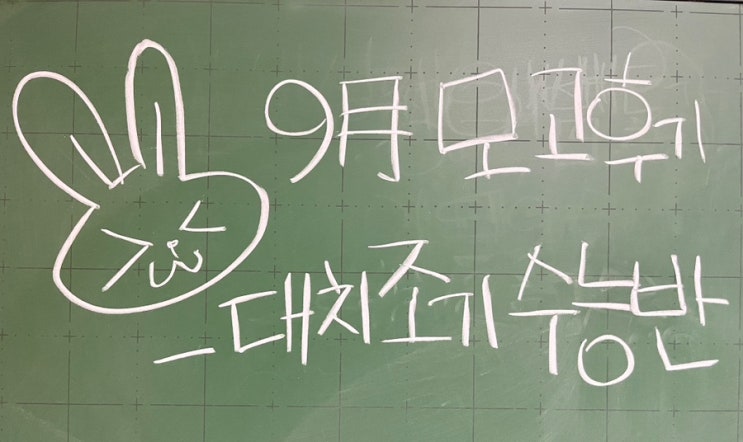 9月 모고후기
_대치조기수능반